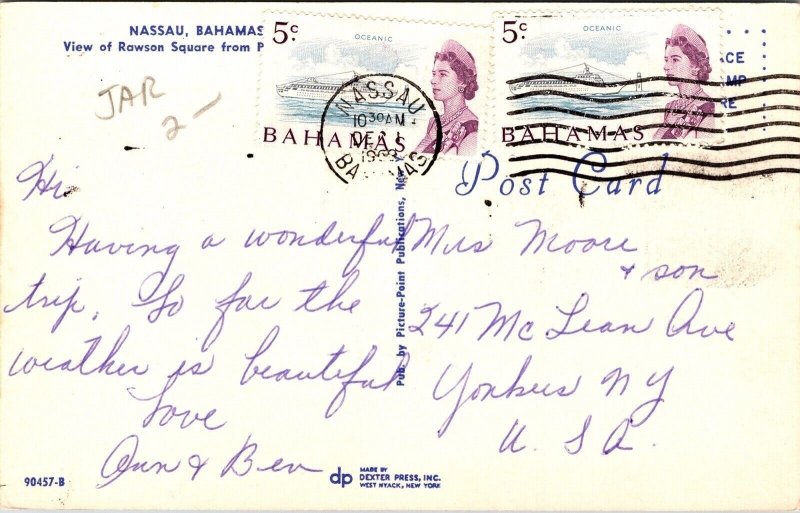 NASSAU, BAHAMAS
View of Rawson Square from P
JAR
2-
5c
OCEANIC
BAHAMAS
5c
OCEANIC
BAHAMAS
NASSAU
10 30 AM
BAHAMAS
ACE
MP
RE
Post Card
Hi
Having a wonderful
trip. So far the
weather is beautiful
Love
Ann & Bev
Mrs Moore
& son
241 Mc Lean Ave
Yonkers NY
U. S A.
Pub. by Picture-Point Publications,
90457-B
dp
MADE BY
DEXTER PRESS, INC.
WEST NYACK, NEW YORK